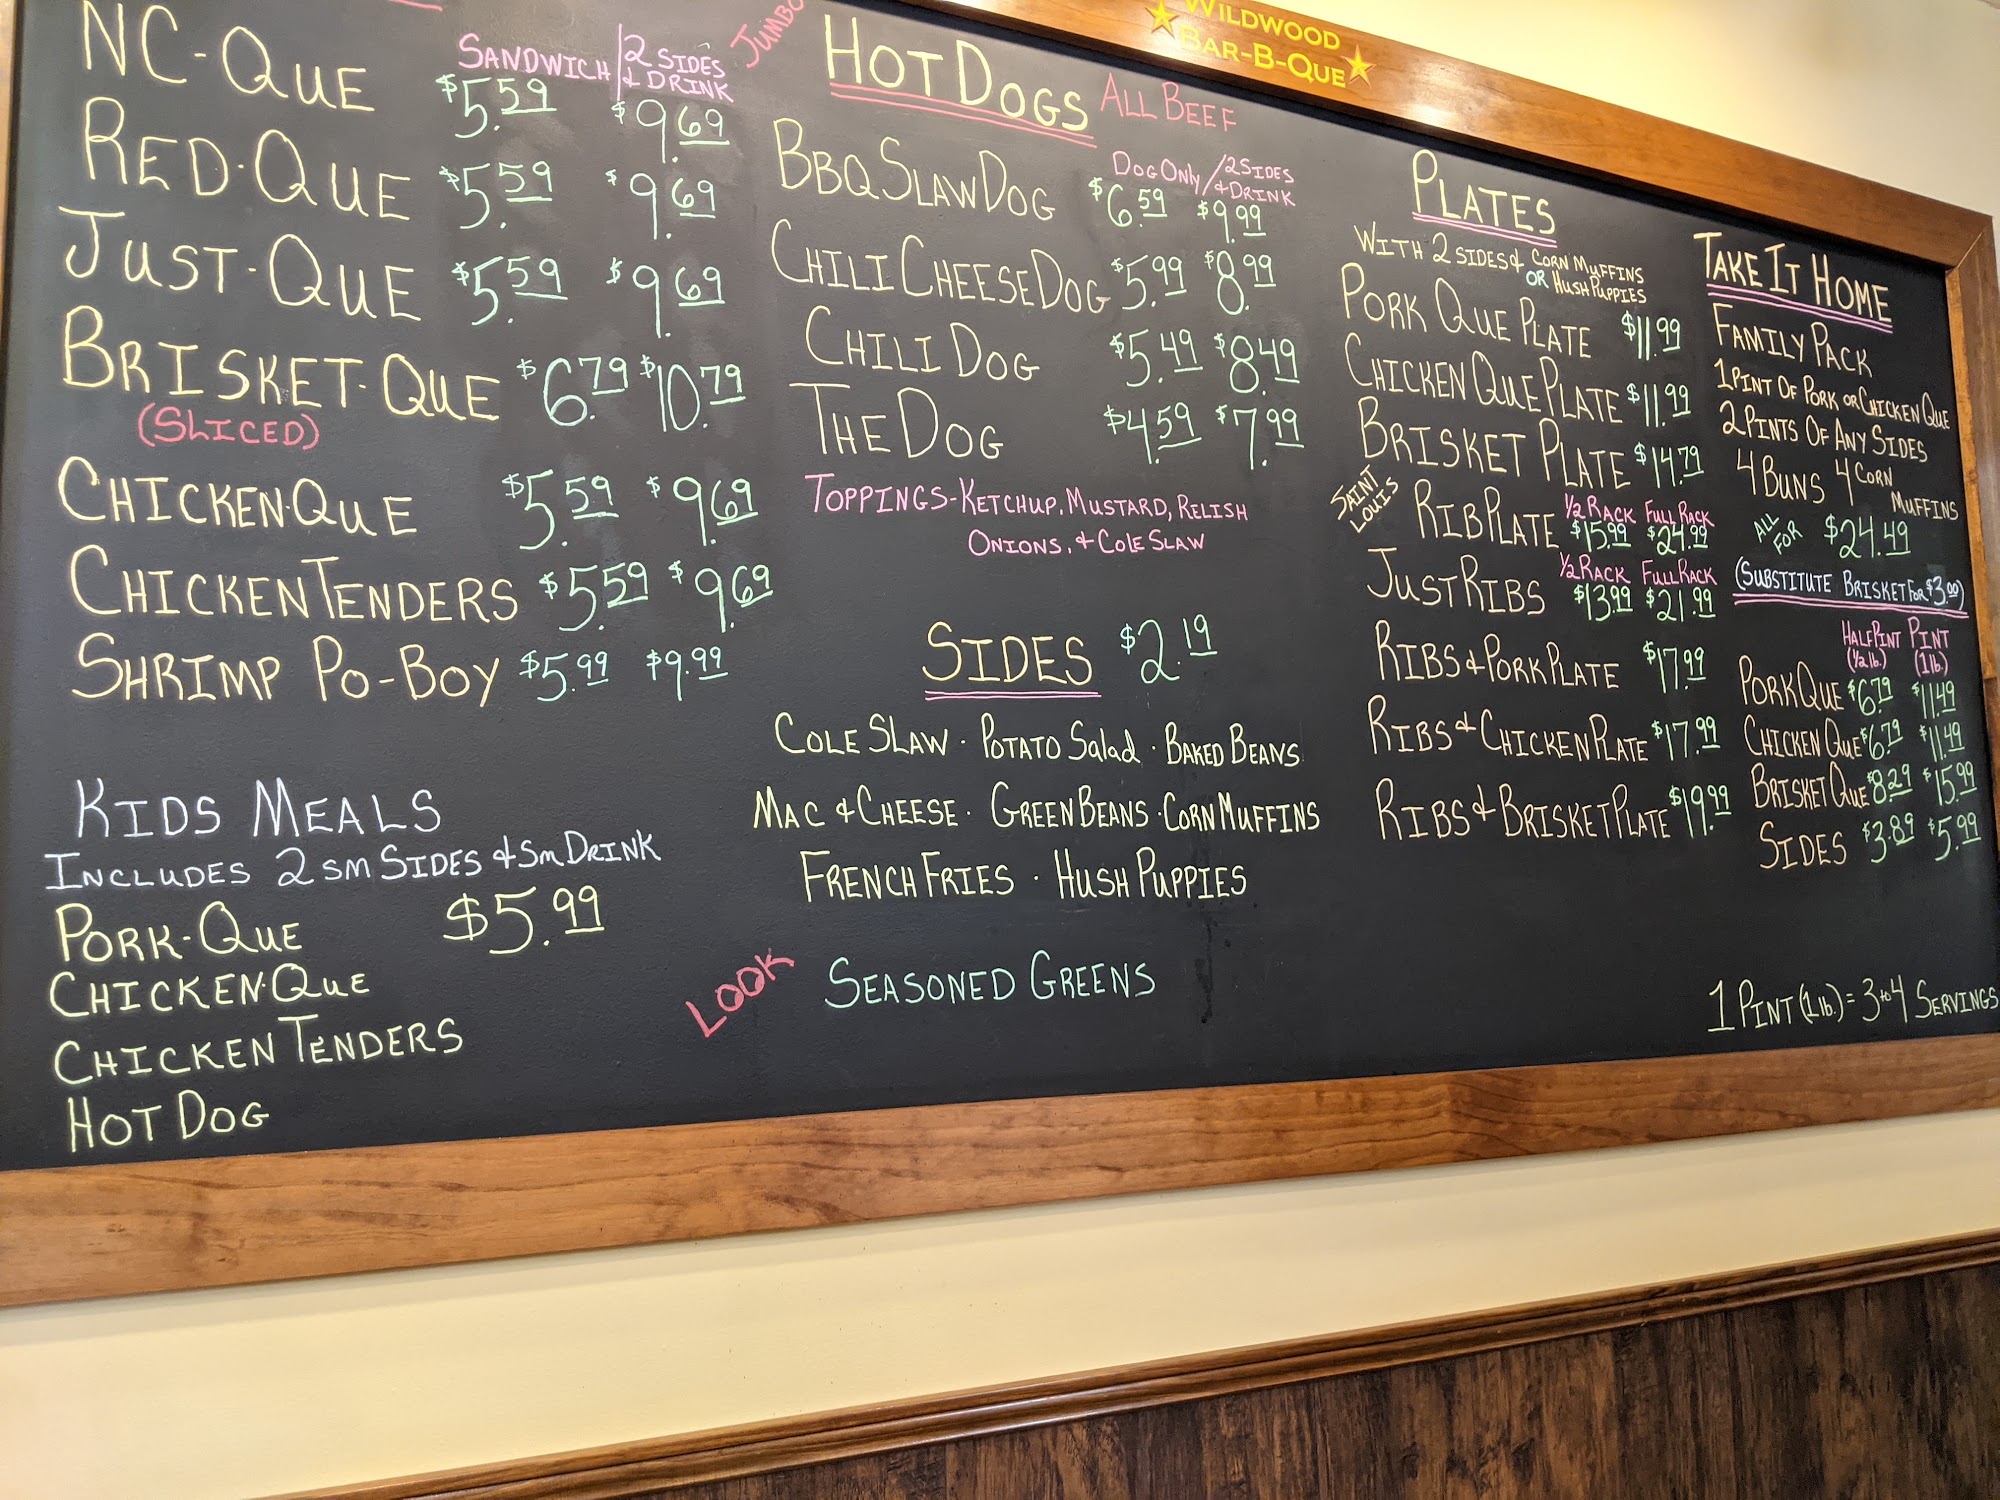 WILDWOOD
BAR-B-QUE
SANDWICH / 2 SIDES & DRINK
NC-QUE $5.59 $9.69
RED-QUE $5.59 $9.69
JUST-QUE $5.59 $9.69
BRISKET-QUE $6.79 $10.79
(SLICED)
CHICKEN-QUE $5.59 $9.69
CHICKEN TENDERS $5.59 $9.69
SHRIMP PO-BOY $5.99 $9.99
KIDS MEALS
INCLUDES 2 SM SIDES & SM DRINK
PORK-QUE $5.99
CHICKEN-QUE
CHICKEN TENDERS
HOT DOG
JUMBO HOT DOGS ALL BEEF
DOG ONLY / 2 SIDES & DRINK
BBQ SLAW DOG $6.59 $9.99
CHILI CHEESE DOG $5.99 $8.99
CHILI DOG $5.49 $8.49
THE DOG $4.59 $7.99
TOPPINGS-KETCHUP, MUSTARD, RELISH
ONIONS, & COLE SLAW
SIDES $2.19
COLE SLAW · POTATO SALAD · BAKED BEANS
MAC & CHEESE · GREEN BEANS · CORN MUFFINS
FRENCH FRIES · HUSH PUPPIES
LOOK SEASONED GREENS
PLATES
WITH 2 SIDES & CORN MUFFINS
OR HUSH PUPPIES
PORK QUE PLATE $11.99
CHICKEN QUE PLATE $11.99
BRISKET PLATE $14.79
1/2 RACK FULL RACK
SAINT LOUIS RIB PLATE $15.99 $24.99
1/2 RACK FULL RACK
JUST RIBS $13.99 $21.99
RIBS & PORK PLATE $17.99
RIBS & CHICKEN PLATE $17.99
RIBS & BRISKET PLATE $19.99
TAKE IT HOME
FAMILY PACK
1 PINT OF PORK OR CHICKEN QUE
2 PINTS OF ANY SIDES
4 BUNS 4 CORN MUFFINS
ALL FOR $24.49
(SUBSTITUTE BRISKET FOR $3.00)
HALF PINT PINT
(1/2 lb.) (1 lb.)
PORK QUE $6.79 $11.49
CHICKEN QUE $6.79 $11.49
BRISKET QUE $8.29 $15.99
SIDES $3.89 $5.99
1 PINT (1 lb.) = 3 to 4 SERVINGS